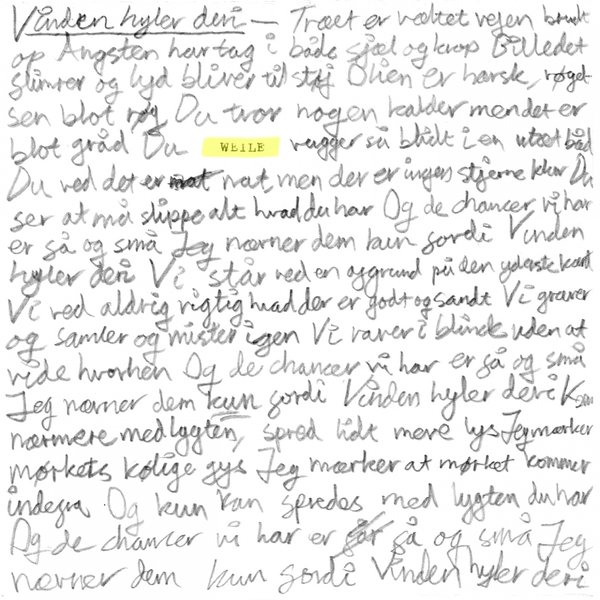 Vinden hyler deri — Træet er væltet vejen brudt
op Angsten har tag i både sjæl og krop Billedet
slimrer og lyd bliver til støj Olien er harsk, røgel
sen blot røg Du tror nogen kalder men det er
blot gråd Du WEILE vugger så blidt i en utæt båd
Du ved det er nat men der er ingen stjerne klar Du
ser at må slippe alt hvad du har Og de chancer vi har
er få og små Jeg nævner dem kun fordi Vinden
hyler deri Vi står ved en afgrund på den yderste kant
Vi ved aldrig rigtig hvad der er godt og sandt Vi graver
og samler og mister igen Vi raver i blinde uden at
vide hvorhen Og de chancer vi har er få og små
Jeg nævner dem kun fordi Vinden hyler deri Kom
nærmere med lygten, spred lidt mere lys Jeg mærker
mørkets kølige gys Jeg mærker at mørket kommer
indefra Og kun kan spredes med lygten du har
Og de chancer vi har er får få og små Jeg
nævner dem kun fordi Vinden hyler deri